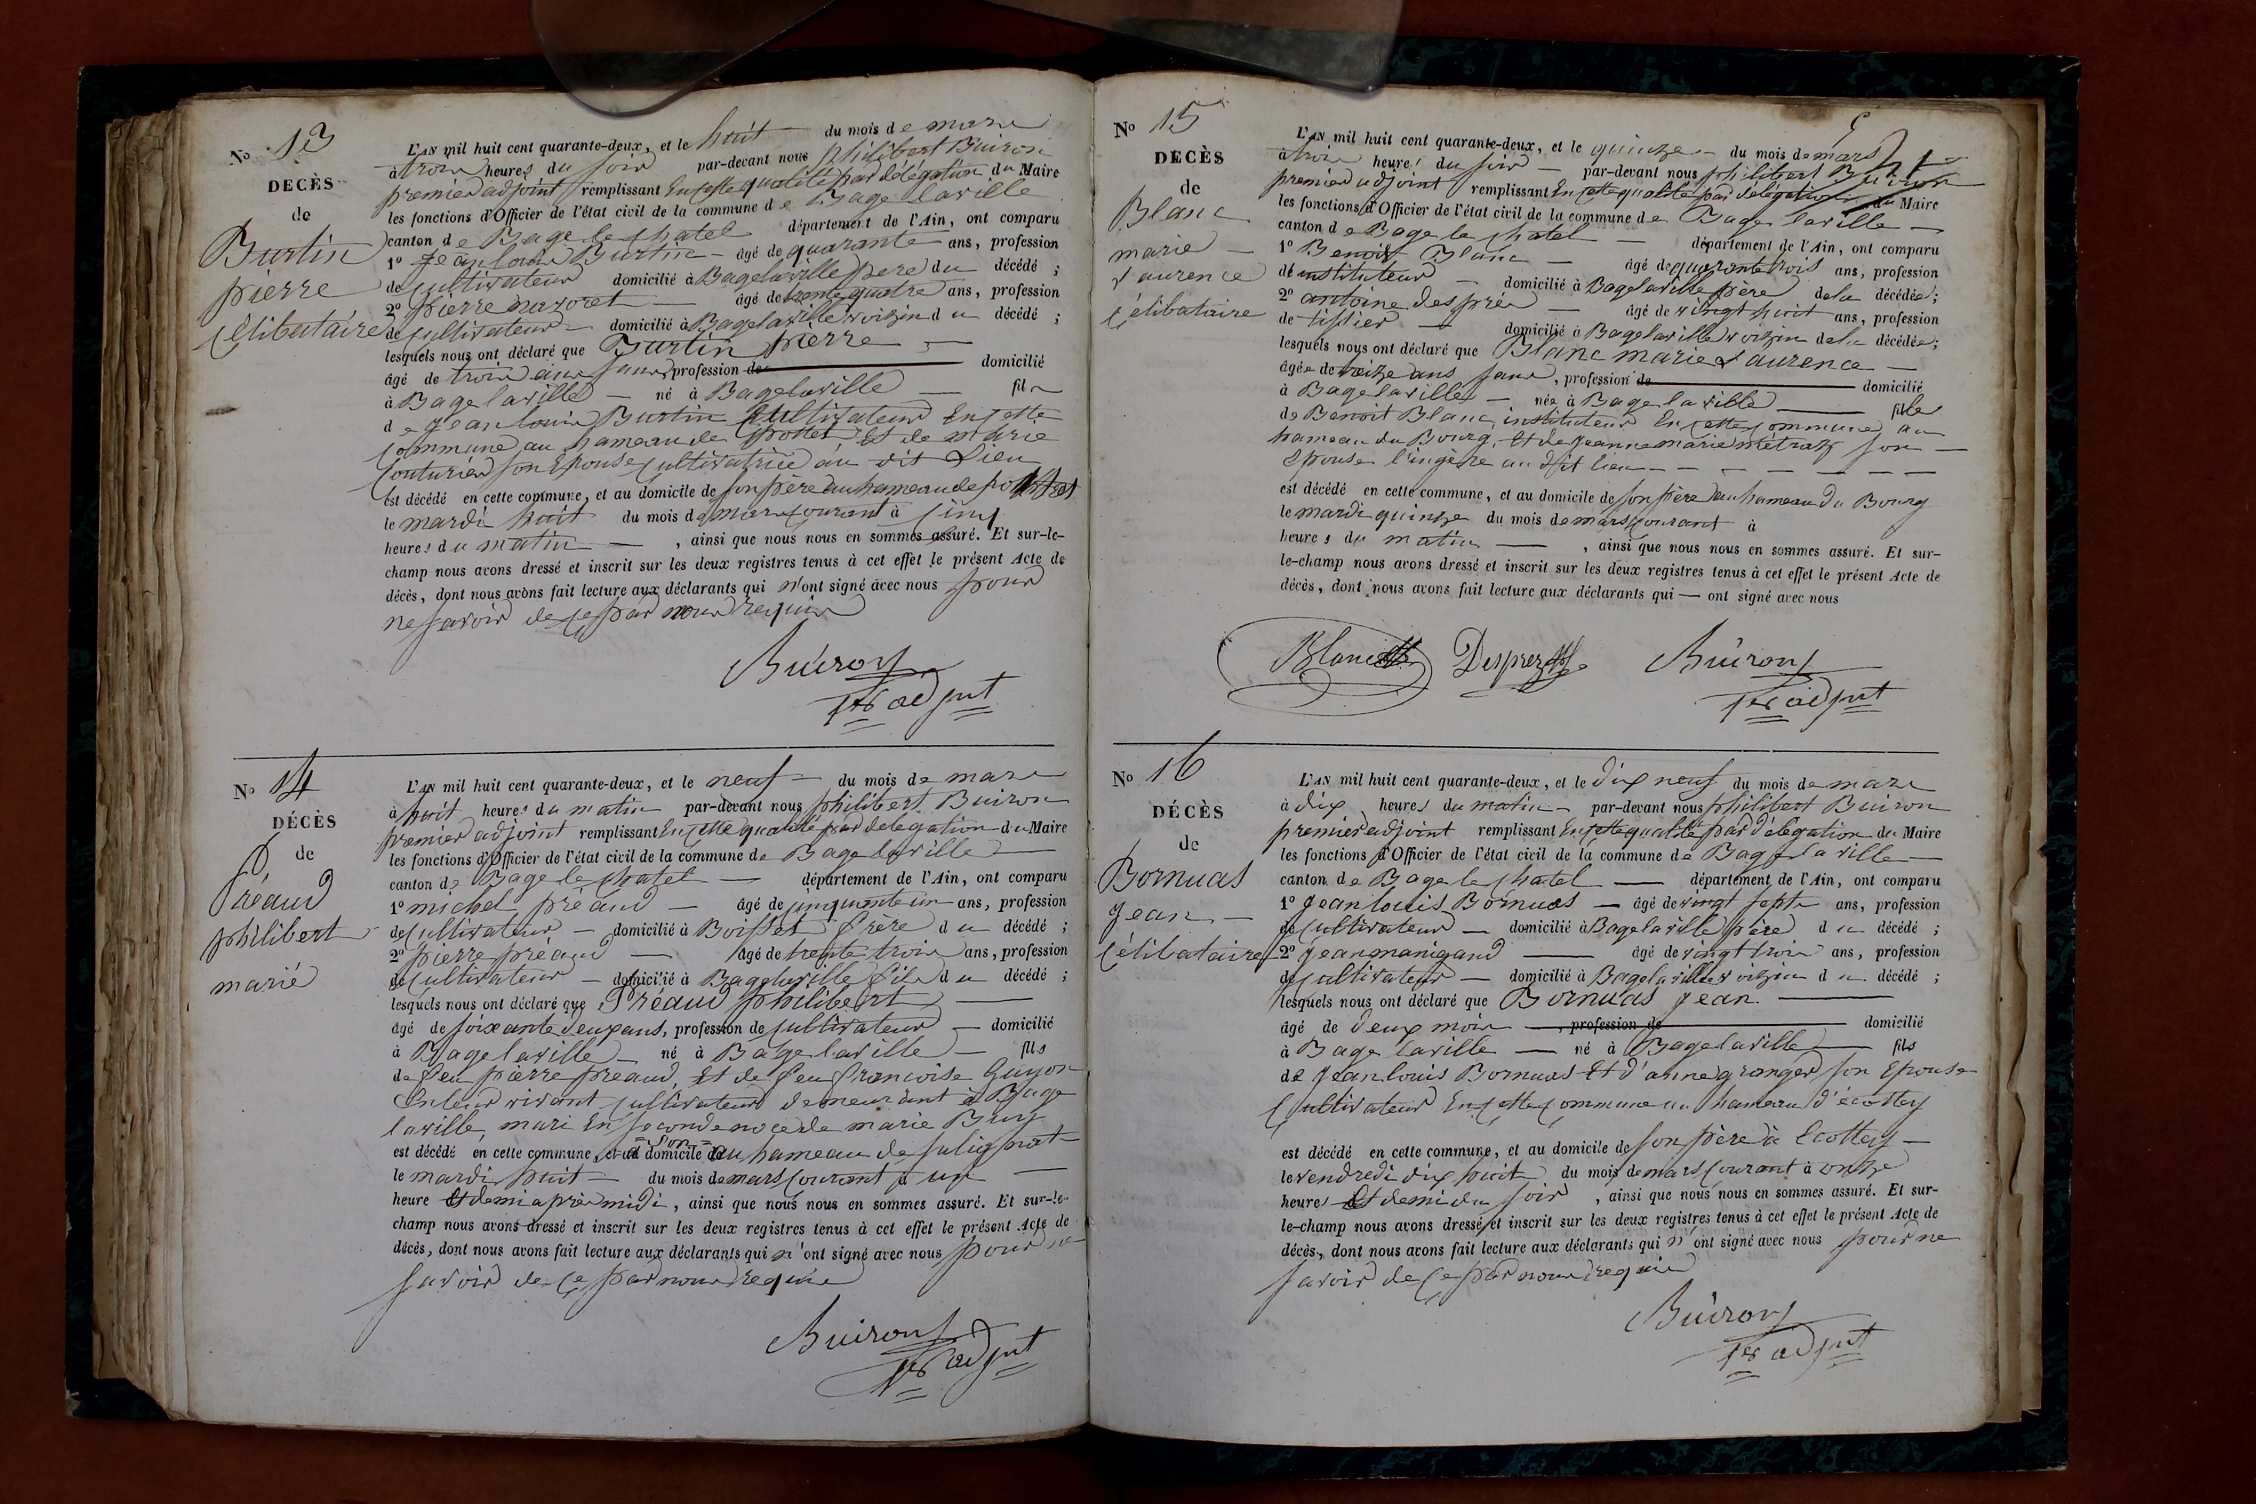 N° 13
DECÈS
de
Burtin
pierre
célibataire
L'AN mil huit cent quarante-deux, et le huit du mois de mars
à trois heures du soir par-devant nous philibert Buiron
premier adjoint remplissant En cette qualité par délégation du Maire
les fonctions d'Officier de l'état civil de la commune de Bage laville
canton de Bage le chatel département de l'Ain, ont comparu
1° jean louis Burtin âgé de quarante ans, profession
de cultivateur domicilié à Bagelaville père du décédé ;
2° pierre mazoret âgé de trente quatre ans, profession
de cultivateur domicilié à Bagelaville voizin du décédé ;
lesquels nous ont déclaré que Burtin pierre
âgé de trois ans sans, profession de domicilié
à Bagelaville né à Bagelaville fils
de jean louis Burtin cultivateur En cette
commune au hameau de pottes Et de marie
couturier son Epouse cultivatrice au dit Lieu
est décédé en cette commune, et au domicile de son père au hameau de
le mardi huit du mois de mars courant à cinq
heures du matin , ainsi que nous nous en sommes assuré. Et sur-le-
champ nous avons dressé et inscrit sur les deux registres tenus à cet effet le présent Acte de
décès, dont nous avons fait lecture aux déclarants qui n'ont signé avec nous pour
ne savoir de ce par nous requis
Buiron
1er adjint
N° 14
DÉCÈS
de
Préaud
philibert
marié
L'AN mil huit cent quarante-deux, et le neuf du mois de mars
à huit heures du matin par-devant nous philibert Buiron
premier adjoint remplissant En cette qualité par delegation du Maire
les fonctions d'Officier de l'état civil de la commune de Bage laville
canton de Bage le chatel département de l'Ain, ont comparu
1° michel préaud âgé de cinquante un ans, profession
de cultivateur domicilié à Boisset frère du décédé ;
2° pierre préaud âgé de trente trois ans, profession
de cultivateur domicilié à Bagelaville fils du décédé ;
lesquels nous ont déclaré que Préaud philibert
âgé de soixante deux ans, profession de cultivateur domicilié
à Bagelaville né à Bagelaville fils
de feu pierre preaud, Et de feu francoise Guyon
En leur vivant cultivateurs demeurant à Bage
laville, mari En seconde noce de marie Buy
est décédé en cette commune, et au domicile = son = au hameau de sulignat
le mardi huit du mois de mars courant à une
heure Et demi après midi, ainsi que nous nous en sommes assuré. Et sur-le-
champ nous avons dressé et inscrit sur les deux registres tenus à cet effet le présent Acte de
décès, dont nous avons fait lecture aux déclarants qui n'ont signé avec nous pour ne
savoir de ce par nous requis
Buiron
1er adjint
N° 15
DECÈS
de
Blanc
marie
Laurence
célibataire
L'AN mil huit cent quarante-deux, et le quinze du mois de mars
à trois heures du soir par-devant nous philibert Buiron
premier adjoint remplissant En cette qualité par délégation du Maire
les fonctions d'Officier de l'état civil de la commune de Bage laville
canton de Bage le chatel département de l'Ain, ont comparu
1° Benoit Blanc âgé de quarante trois ans, profession
de instituteur domicilié à Bagelaville père de la décédée ;
2° antoine després âgé de vingt huit ans, profession
de tissier domicilié à Bagelaville voizin de la décédée ;
lesquels nous ont déclaré que Blanc marie Laurence
âgée de ans sans, profession de domicilié
à Bagelaville née à Bagelaville fille
de Benoit Blanc instituteur En cette commune au
hameau du Bourg, Et de jeanne marie métraz son
Epouse l'ingère au dit lieu
est décédé en cette commune, et au domicile de son père au hameau du Bourg
le mardi quinze du mois de mars courant à
heures du matin , ainsi que nous nous en sommes assuré. Et sur-
le-champ nous avons dressé et inscrit sur les deux registres tenus à cet effet le présent Acte de
décès, dont nous avons fait lecture aux déclarants qui — ont signé avec nous
Blanc Desprez Buiron
1er adjint
N° 16
DÉCÈS
de
Bornuas
jean
célibataire
L'AN mil huit cent quarante-deux, et le dix neuf du mois de mars
à dix heures du matin par-devant nous philibert Buiron
premier adjoint remplissant En cette qualité par délégation du Maire
les fonctions d'Officier de l'état civil de la commune de Bage la ville
canton de Bage le chatel département de l'Ain, ont comparu
1° jean louis Bornuas âgé de vingt sept ans, profession
de cultivateur domicilié à Bagelaville père du décédé ;
2° jean manigand âgé de vingt trois ans, profession
de cultivateur domicilié à Bagelaville voizin du décédé ;
lesquels nous ont déclaré que Bornuas jean
âgé de deux mois , profession de domicilié
à Bage laville né à Bagelaville fils
de jean louis Bornuas Et d'anne granger son Epouse
cultivateurs En cette commune au hameau d'écottey
est décédé en cette commune, et au domicile de son père à Ecottey
le vendredi dix huit du mois de mars courant à onze
heures Et demi du soir , ainsi que nous nous en sommes assuré. Et sur-
le-champ nous avons dressé et inscrit sur les deux registres tenus à cet effet le présent Acte de
décès, dont nous avons fait lecture aux déclarants qui n'ont signé avec nous pour ne
savoir de ce par nous requis
Buiron
1er adjint